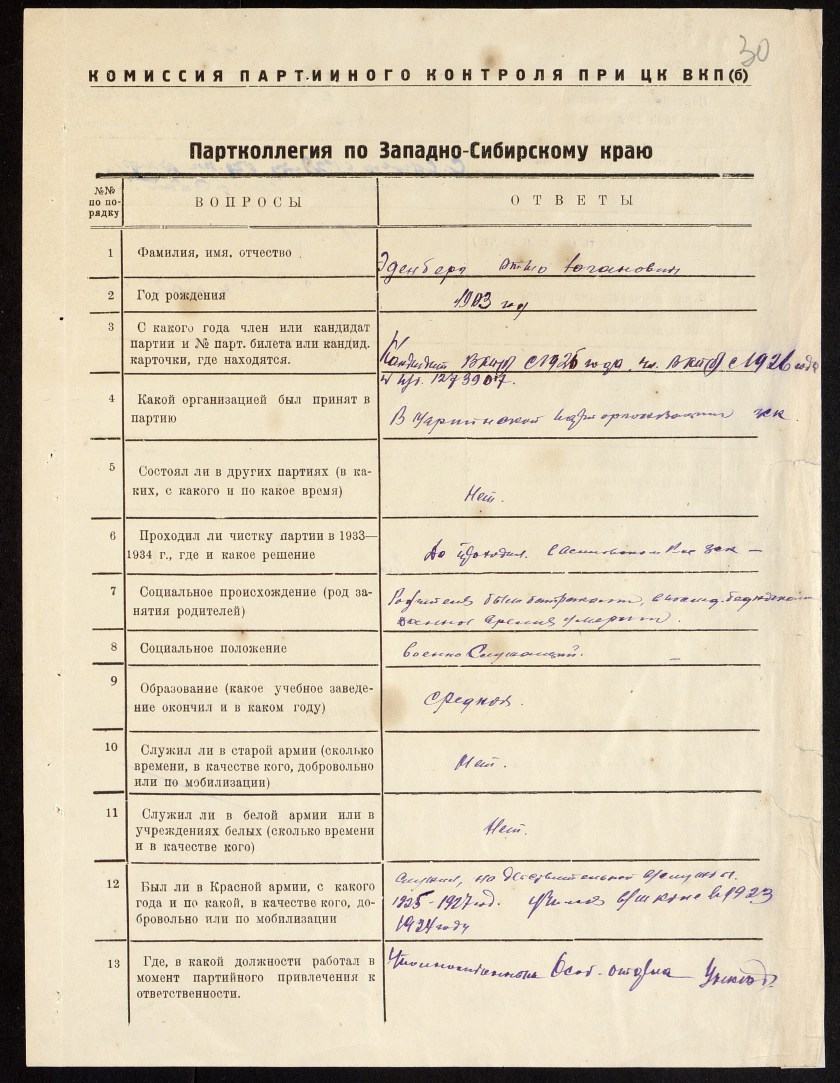 30
КОМИССИЯ ПАРТИЙНОГО КОНТРОЛЯ ПРИ ЦК ВКП(б)
Партколлегия по Западно-Сибирскому краю
№№ по по-рядку
ВОПРОСЫ
ОТВЕТЫ
1
Фамилия, имя, отчество
Эденберг Отто Юганович
2
Год рождения
1903 год
3
С какого года член или кандидат
партии и № парт. билета или кандид.
карточки, где находятся.
Кандидат ВКП(б) с 1925 года, чл. ВКП(б) с 1926 года
1273907.
4
Какой организацией был принят в
партию
В парторганизации
5
Состоял ли в других партиях (в ка-
ких, с какого и по какое время)
Нет.
6
Проходил ли чистку партии в 1933—
1934 г., где и какое решение
Да проходил.
7
Социальное происхождение (род за-
нятия родителей)
Родители были батраками,
военное время умерли.
8
Социальное положение
военно Служащий. —
9
Образование (какое учебное заведе-
ние окончил и в каком году)
Среднее.
10
Служил ли в старой армии (сколько
времени, в качестве кого, добровольно
или по мобилизации)
Нет.
11
Служил ли в белой армии или в
учреждениях белых (сколько времени
и в качестве кого)
Нет.
12
Был ли в Красной армии, с какого
года и по какой, в качестве кого, до-
бровольно или по мобилизации
Служил, на действительной службы.
1925-1927 год. в школе в 1923
1924 году
13
Где, в какой должности работал в
момент партийного привлечения к
ответственности.
Уполномоченным Особ-отдела